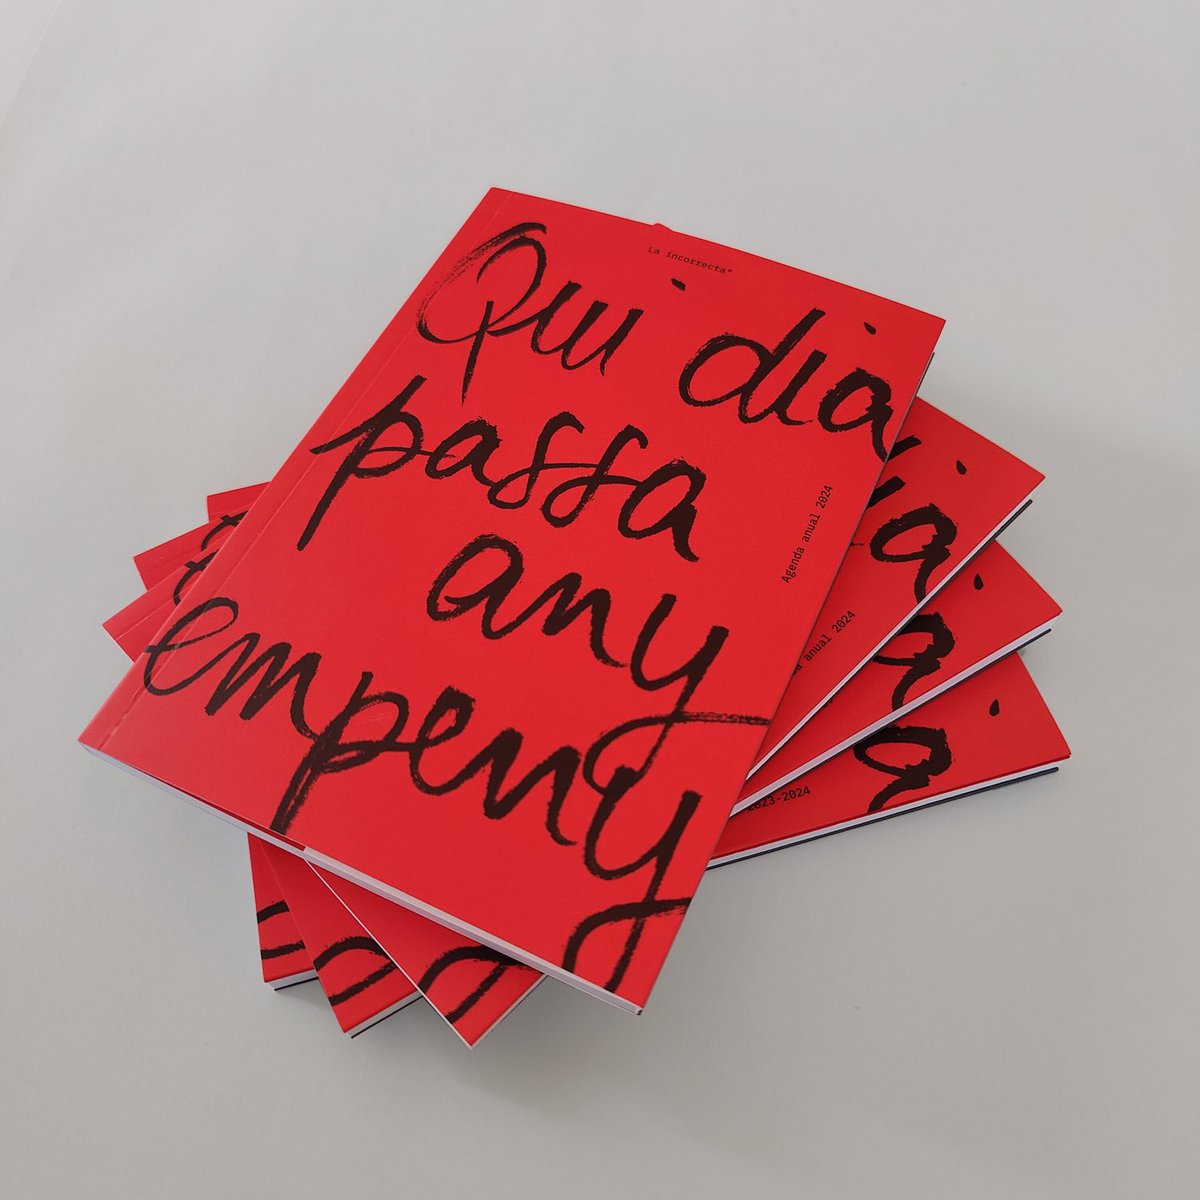 La incorrecta*
Qui dia
passa
any
empeny
Agenda anual 2024
anual 2024
2023-2024